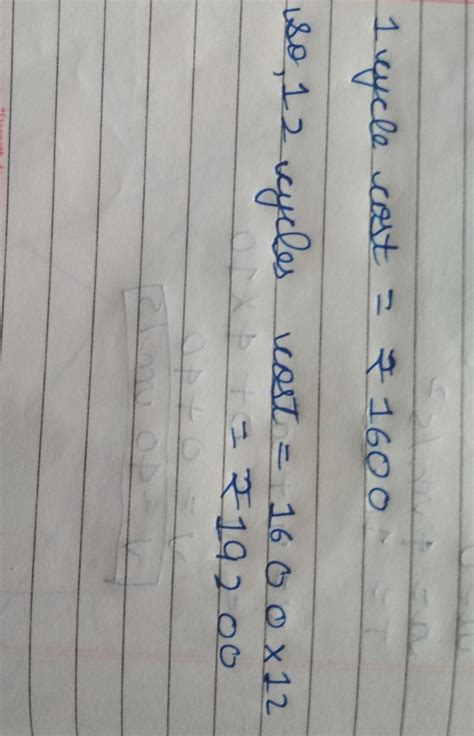 1 cycle cost = ₹1600
so, 12 cycles cost = 1600×12
= ₹19200